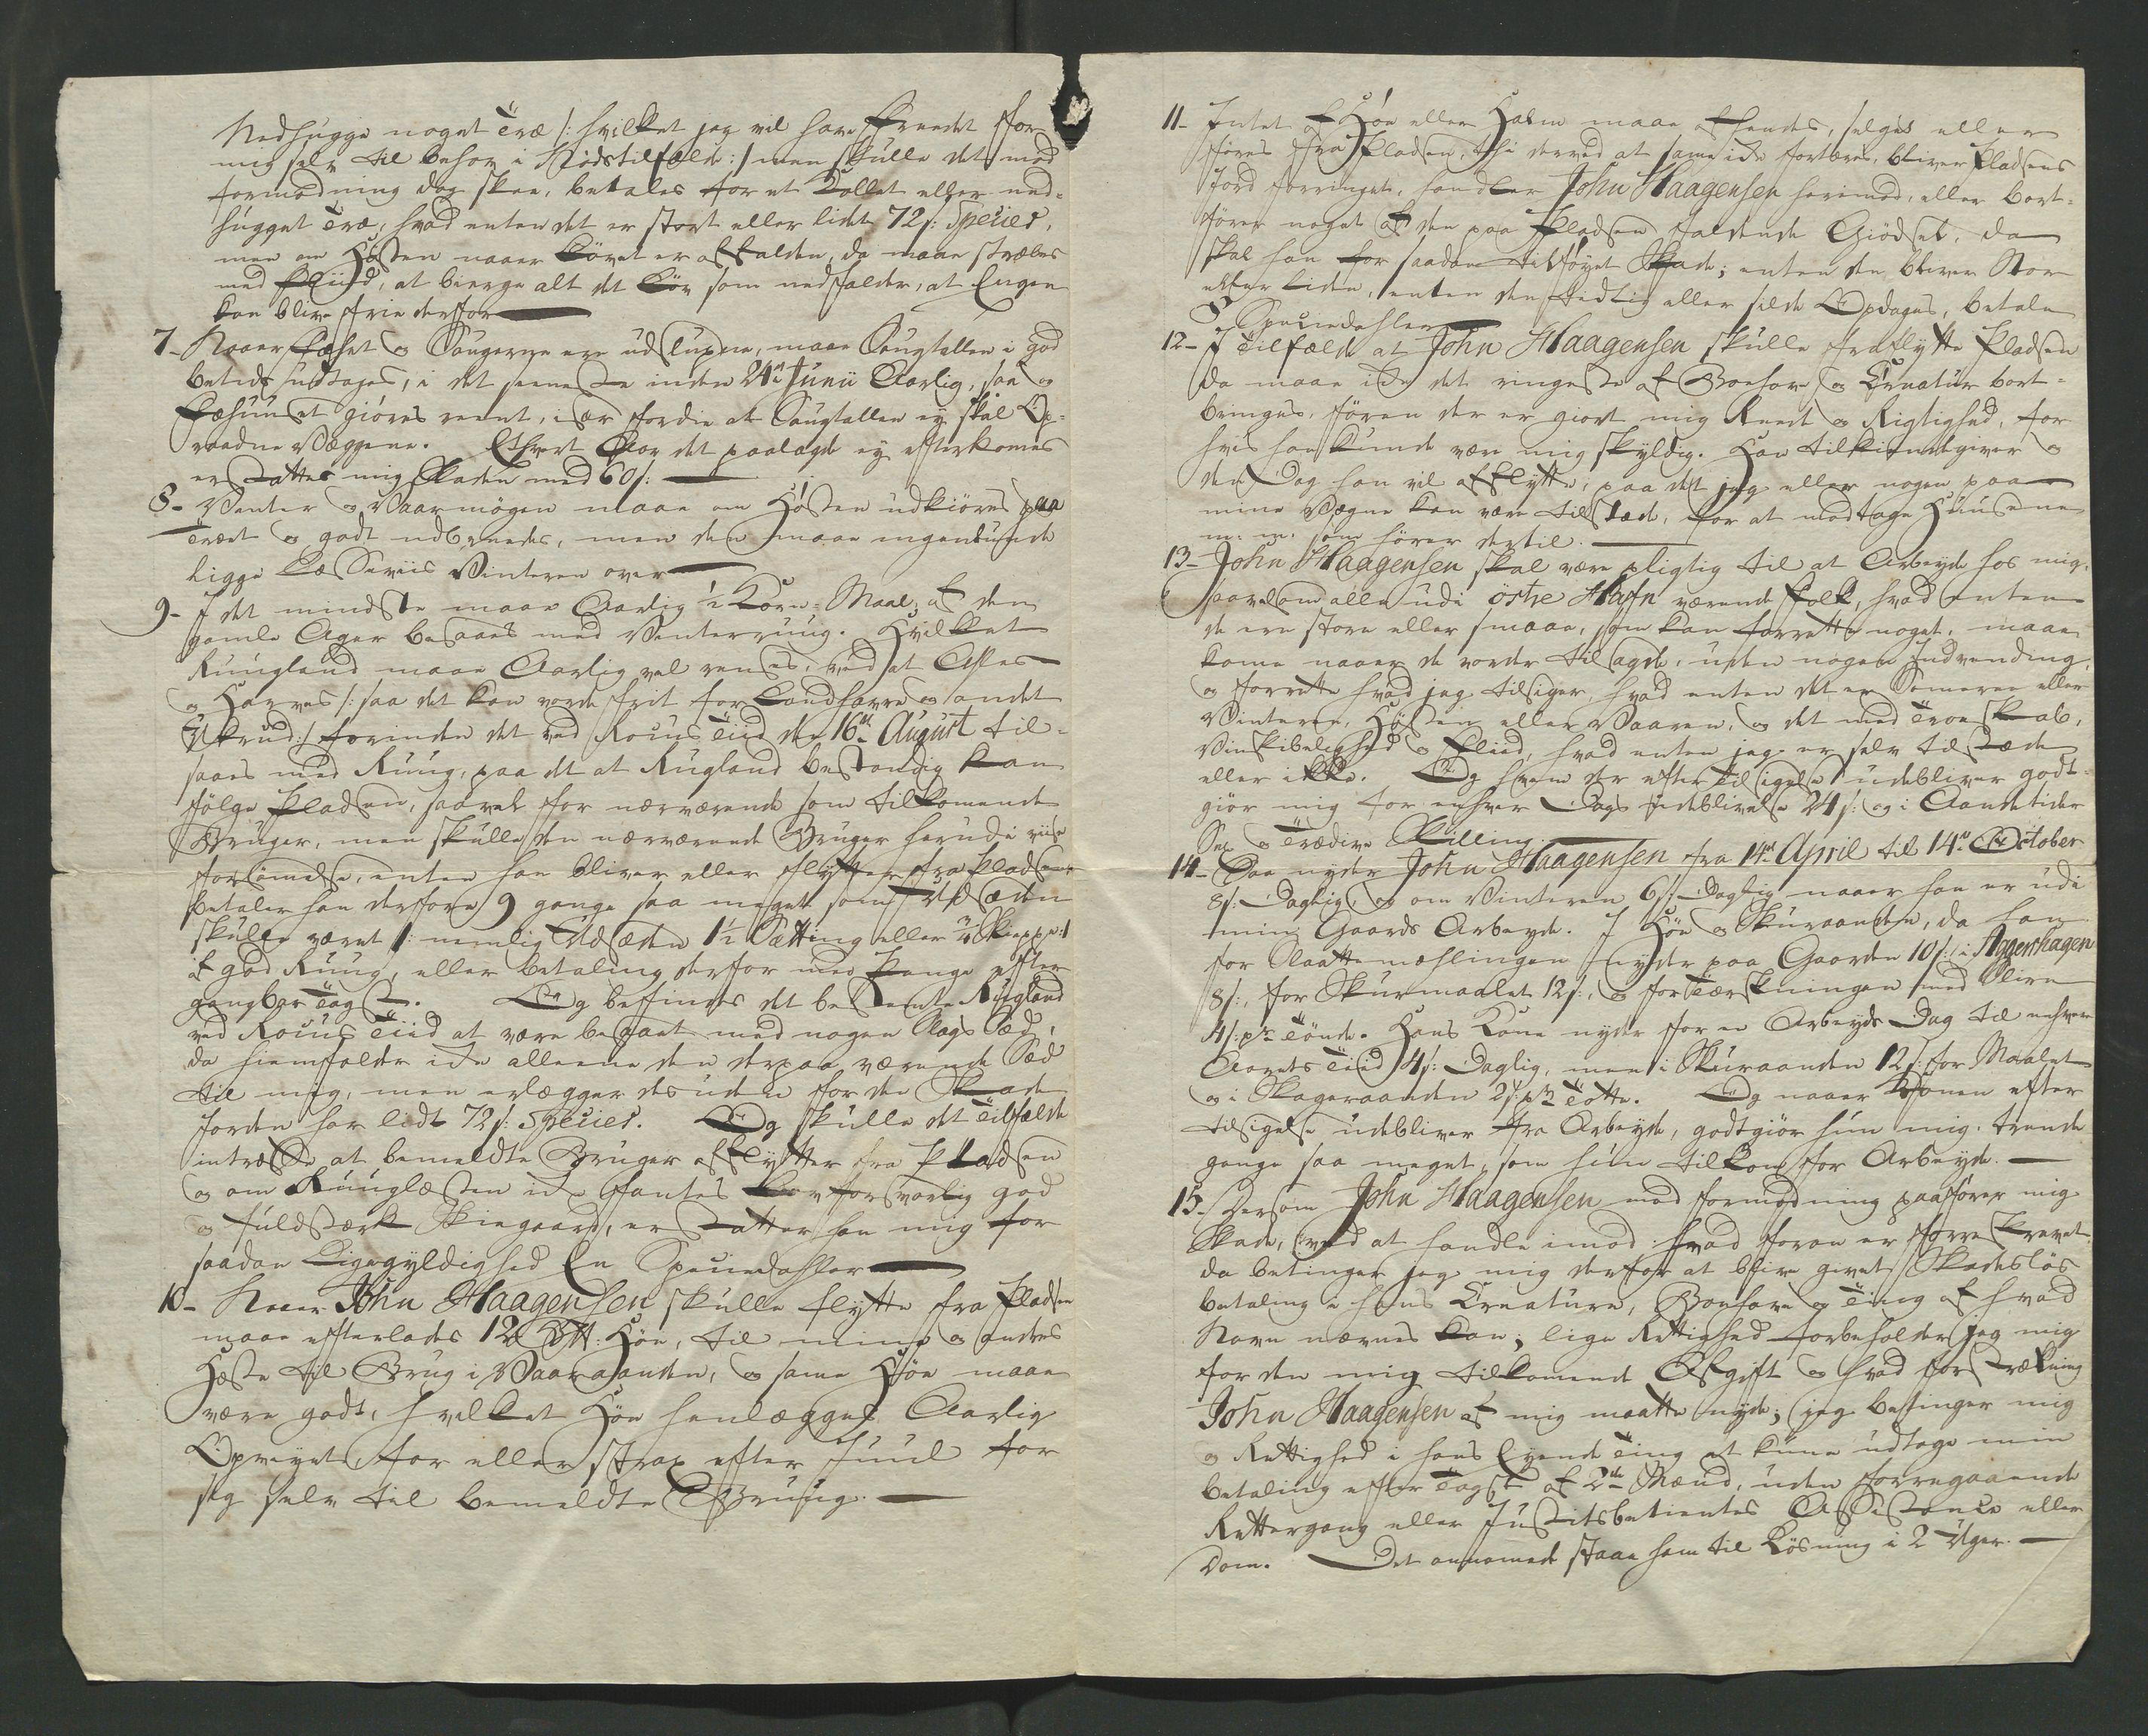 Nedhugge noget Træ /: hvilket jeg vil have Freedet for
mig selv til behov i Nödstilfælde :/ men skulle det mod
formodning dog skee, betales for et Kollet eller ned-
hugget Træ, hvad enten det er stort eller lidt 72 s: Species,
men om Hösten naaer Lövet er affalden, da maae stræbes
med Fliid, at bierge alt det Löv som nedfalder, at Engen
kan blive frie derfor
7- Naaer Fæhet og Saugerne ere udslupne, maae Saugtallen i god
betids udtages, i det seeneste inden 24de Junii Aarlig, saa og
Fæhuuset giöres reent, især fordie at Saugtallen ey skal Op-
raadne Væggene. Ethvert Aar det paalagde ey efterkomes
erstattes mig Skaden med 60 s:
8- Venter og Vaarmögen maae om Hösten udkiöres paa
Træet og godt udbreedes, men den maae ingenlunde
ligge Læsseviis Vinteren over
9- I det mindste maae Aarlig 1/2 Korn-Maal, af den
gamle Ager besaaes med Venterruug. Hvilket
Ruugland maae Aarlig vel renses, ved at Aftes
og Harves /: saa det kan vorde frit for Landhavre og andet
Ukrud :/ forinden det ved Rocus Tiid den 16de August til-
saaes med Ruug, paa det at Rugland bestandig kan
fölge Pladsen, saavel for nærværende som tilkomende
Bruger, men skulle den nærværende Bruger herudi viise
forsömelse, enten han bliver eller flytter fra Pladsen
betaler han derfore 9 gange saa meget som Udsæden
skulle været /: nemlig Udsæden 1 1/2 Sætting eller 3/4 Skieppe :/
af god Ruug, eller betaling derfor med Penge efter
gangbar Tagst. Og beffindes det bestemte Rugland
ved Rocus Tiid at være besaaet med nogen Slags Sæd,
da hiemfalder ikke alleene den derpaa værende Sæd
til mig, men erlægger desuden for den Skade
Jorden har lidt 72 s: Species. Og skulle det Tilfælde
intræffe at bemeldte Bruger afflytter fra Pladsen
og om Ruuglæsten ikke fantes Lovforsvarlig god
og fuldstærk Skiegaard, erstatter han mig for
saadan Ligegyldighed En Speciedahler
10- Naaer John Haagensen skulle flytte fra Pladsen
maae efterlades 12 Btt: Höe, til mine og andres
Heste til Brug i Vaaraanden, og same Höe maae
være godt, hvilket Höe henlægges Aarlig
Opveyet för eller strax efter Juul for
sig selv til bemeldte Bruug.
11- Intet af Höe eller Halm maae afhendes, selges eller
föres fra Pladsen, thi derved at same ikke fortæres, bliver Pladsens
Jord forringet, handler John Haagensen herimod, eller bort-
förer noget af den paa Pladsen faldende Giödsel, da
skal han for saadan tilföyet Skade; enten den bliver Stor
eller liden, enten den tidlig eller silde Opdages, betale
8 Speciedahler
12- I Tilfælde at John Haagensen skulle fraflytte Pladsen
da maae ikke det ringeste af Boehave og Creatur bort-
bringes, fören der er giort mig Reede og Rigtighed, for
hvis han kunde være mig skyldig. Han tilkiendegiver og
den Dag han vil afflytte, paa det jeg eller nogen paa
mine Vegne kan være tilstæde, for at modtage Huusene
m: m: som hörer dertil.
13- John Haagensen skal være pligtig til at Arbeyde hos mig,
saavelsom alle udi östre Hafn værende Folk, hvad enten
de ere store eller smaae, som kan forrette noget, maae
kome naaer de vorder tilsagde, uden nogen Indvending,
og forrette hvad jeg tilsiger, hvad enten det er Someren eller
Vinteren, Hösten eller Vaaren, og det med Troeskab,
Vinskibelighed og Fliid, hvad enten jeg er selv tilstæde
eller ikke. Og hvem der efter Tilsigelse udebliver godt-
giör mig for enhver Dags Udeblivelse 24 s: og i Aandetider
Sex og Tredive Skilling
14- Saa nyder John Haagensen fra 14de April til 14de October
8 s: Daglig, og om Vinteren 6 s: Daglig naaer han er udi
min Gaards Arbeyde. I Höe og Skuraanden, da han
for Slaattemæhlingen nyder paa Gaarden 10 s: i Aggerhagen
8 s:, for Skurmaalet 12 s:, og for Tærskningen med Sliire
4 s: pr Tönde. Hans Kone nyder for en Arbeyds Dag til enhver
Aarets Tiid 4 s: Daglig, men i Skuraanden 12 s: for Maalet
og i Skageraanden 2 s: pr Totte. Og naaer Konen efter
tilsigelse udebliver fra Arbeyde, godtgiör hun mig trende
gange saa meget, som hun tilkom for Arbeyde.
15- Dersom John Haagensen mod formodning paaförer mig
Skade, ved at handle imod hvad foran er forreskrevet,
da betinger jeg mig derfor at blive givet Skadeslös
betaling i hans Creature, Boehave og Ting af hvad
Navn nævnes kan; lige Rettighed forbeholder jeg mig
for den mig tilkomende Afgift og hvad forstrækning
John Haagensen af mig maatte nyde; jeg betinger mig
og Rettighed i hans Eyende Ting at kunne udtage min
betaling efter Tagst af 2de Mænd, uden forregaaende
Rettergang eller Justitsbetientes Assistence eller
Dom. Det annamede staae ham til Lösning i 2 Uger.